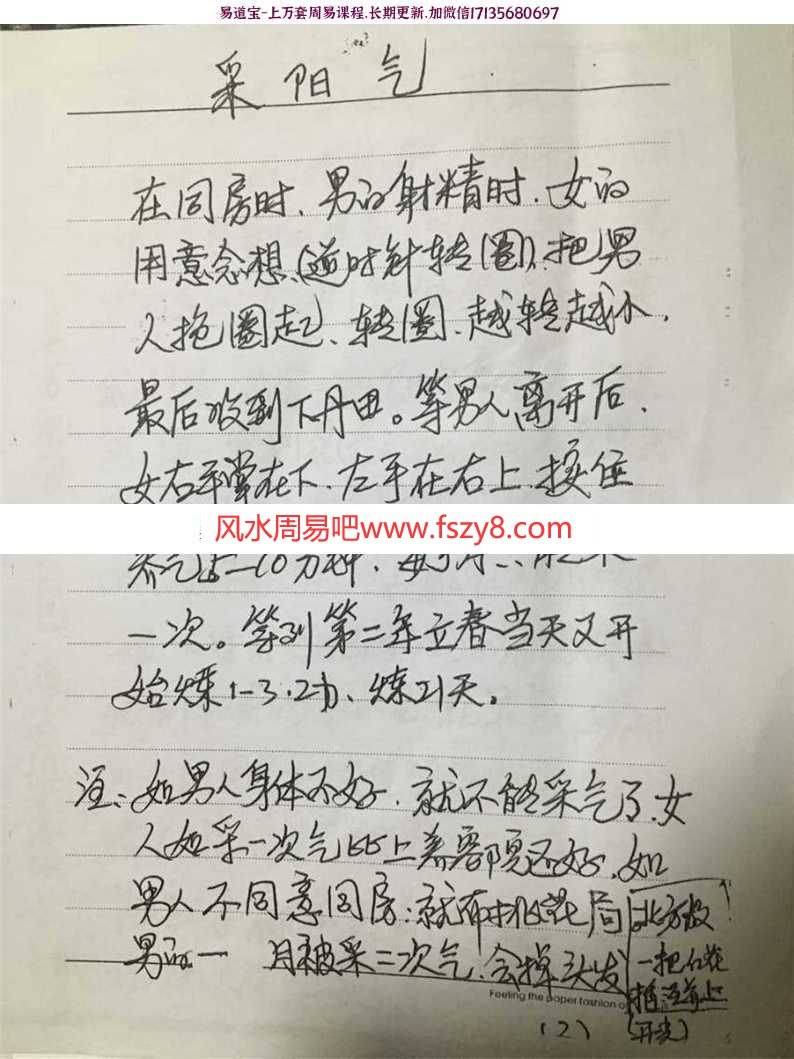 易道宝-上万套周易课程.长期更新.加微信17135680697
采阳气
在同房时、男的射精时.女的
用意念想、(逆时针转圈)、把男
人抱圈起、转圈、越转越小.
最后收到下丹田。等男人离开后.
女右手掌在下.左手在右上.按住
风水周易吧www.fszy8.com
养气5—10分钟.每
一次。等到第二年立春当天又开
始炼1-3.2功、炼21天。
注:如男人身体不好.就不能采气了.女
人如采一次气比上美容院还好.如
男人不同意同房:就布桃花局
北方放
男的一 月被采二次气.会掉头发
一把红花
Feeling the paper fashion o
(2)